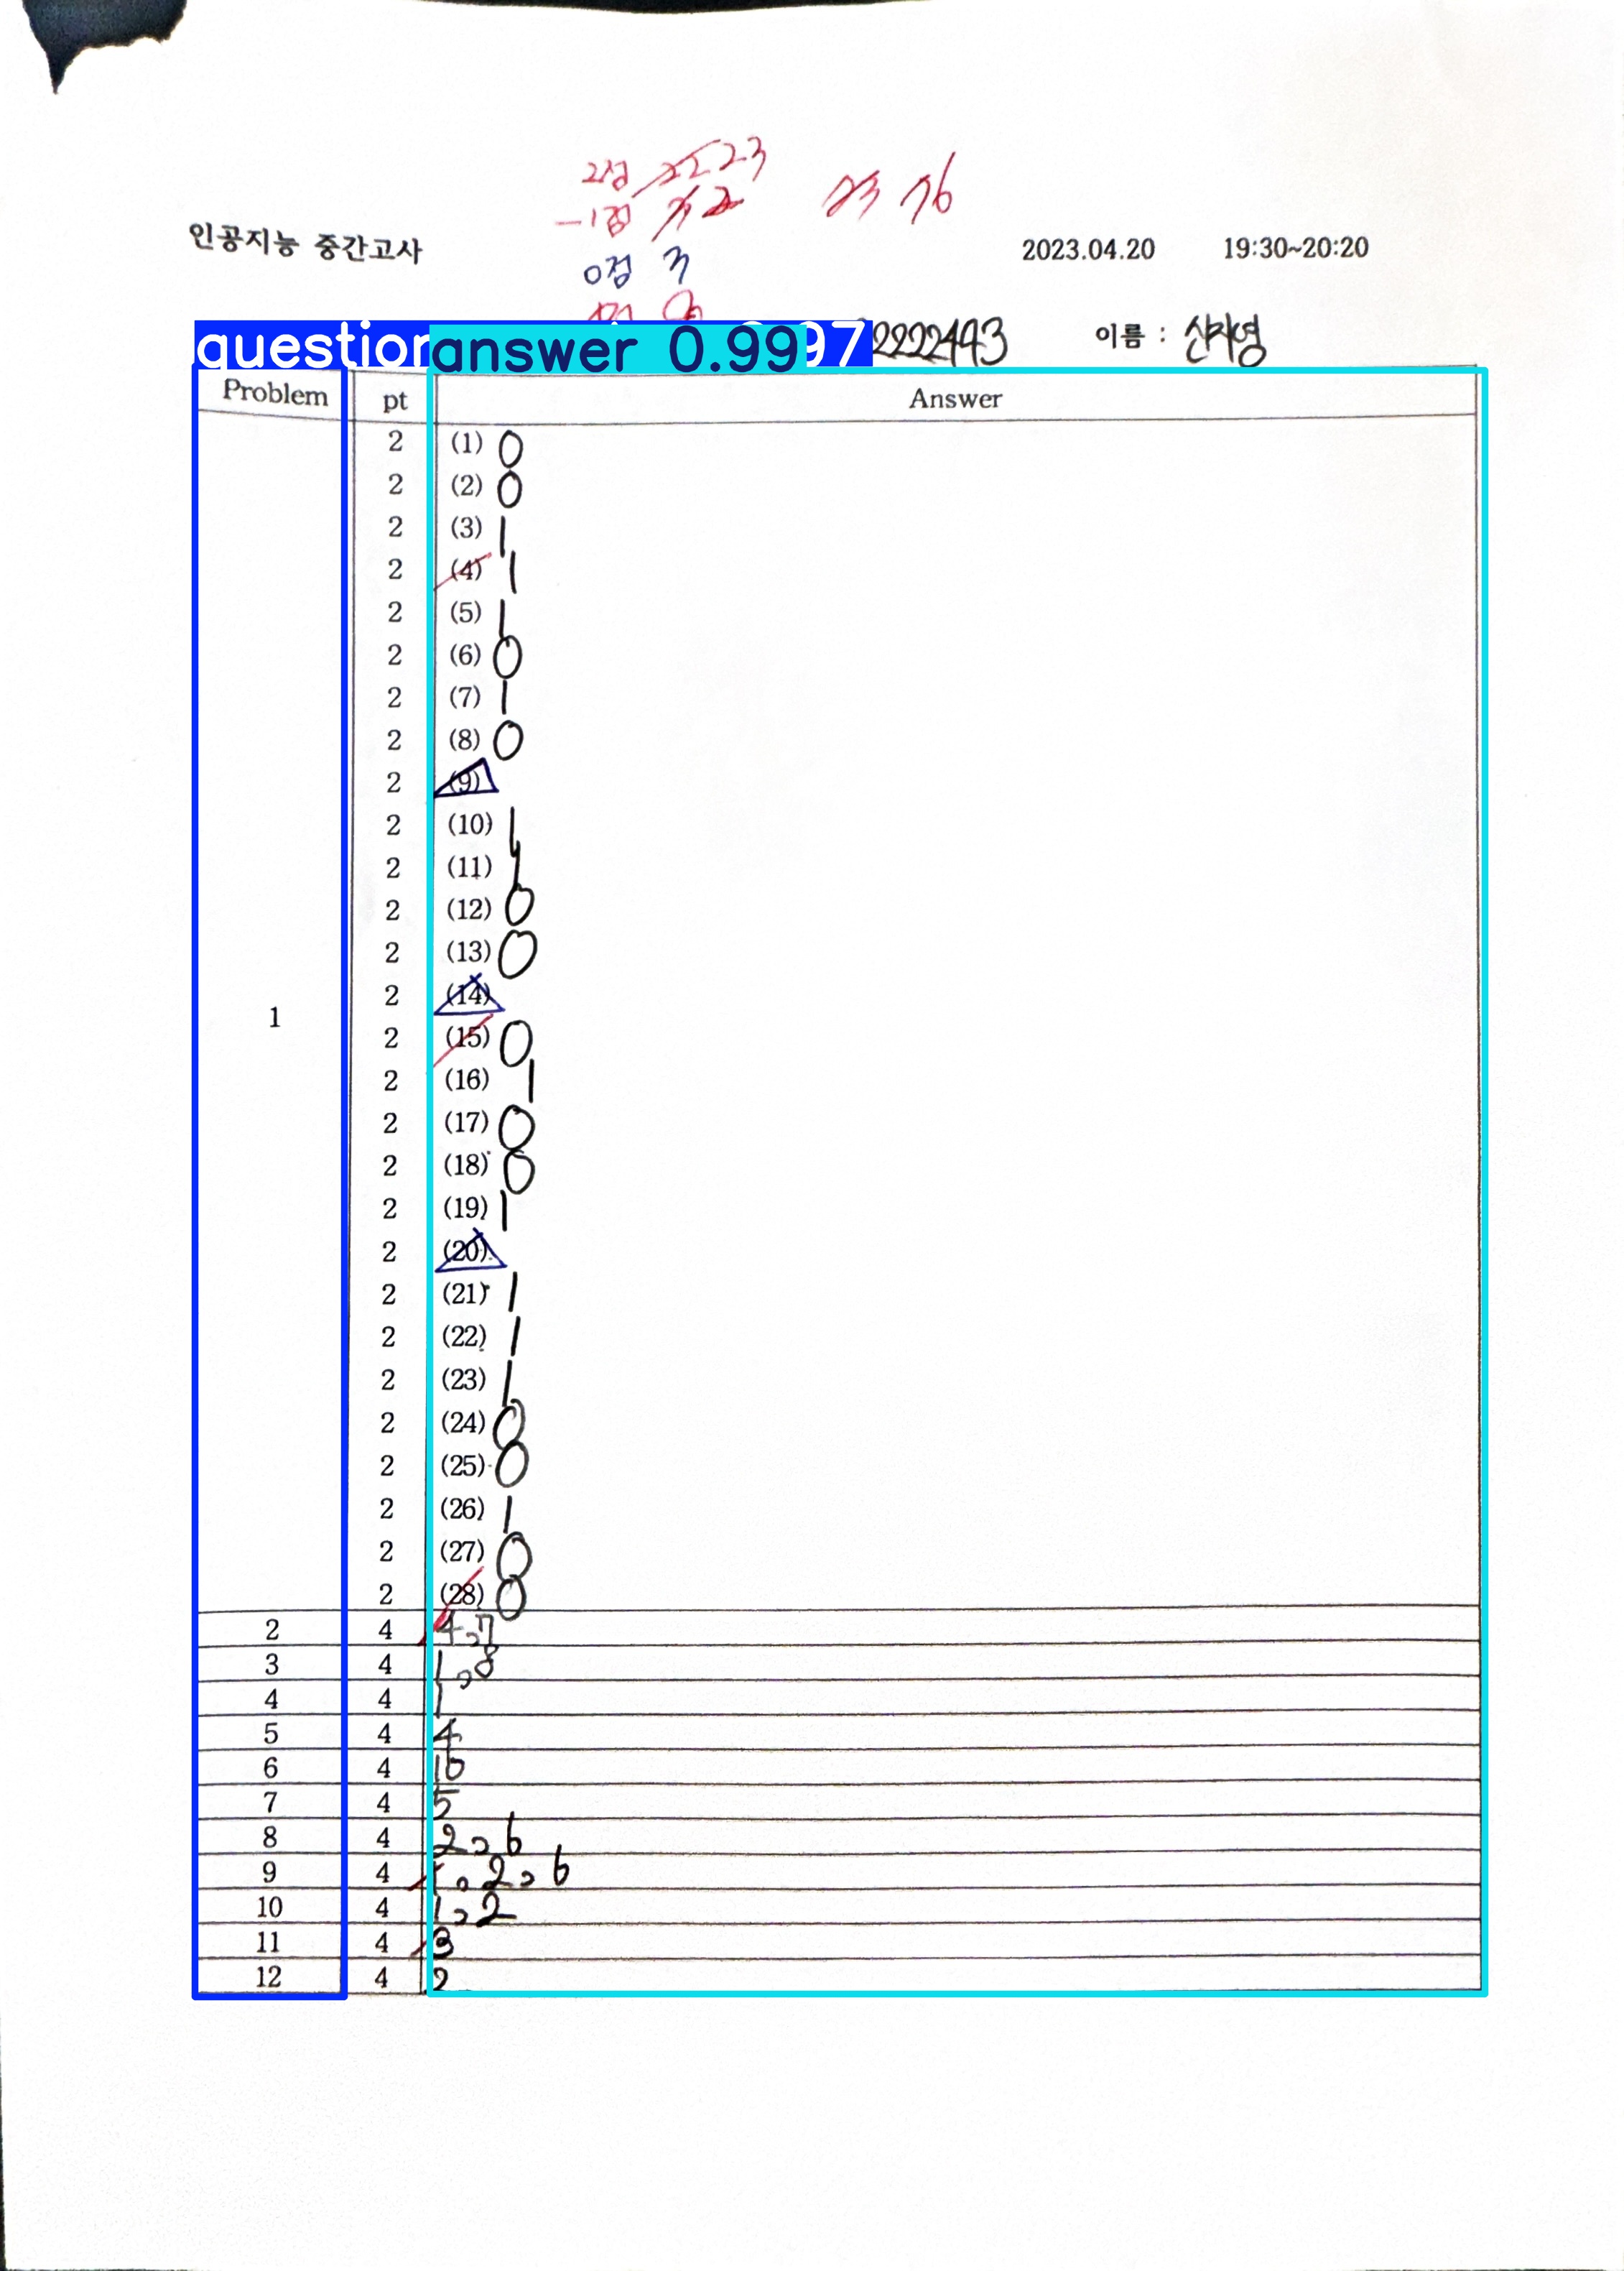 2점 22 23
-1점 2
0점 3
76
인공지능 중간고사 2023.04.20 19:30~20:20
question answer 0.99 97 2222443 이름 : 신지영
Problem pt Answer
2 (1) 0
2 (2) 0
2 (3) 1
2 (4) 1
2 (5) 1
2 (6) 0
2 (7) 1
2 (8) 0
2 (9)
2 (10) 1
2 (11) 1
2 (12) 0
2 (13) 0
2 (14)
1
2 (15) 0
2 (16) 1
2 (17) 0
2 (18) 0
2 (19) 1
2 (20)
2 (21) 1
2 (22) 1
2 (23) 1
2 (24) 0
2 (25) 0
2 (26) 1
2 (27) 0
2 (28) 0
2 4 4,7
3 4 1,8
4 4 1
5 4 4
6 4 10
7 4 5
8 4 2,6
9 4 1,2,6
10 4 1,2
11 4 3
12 4 2